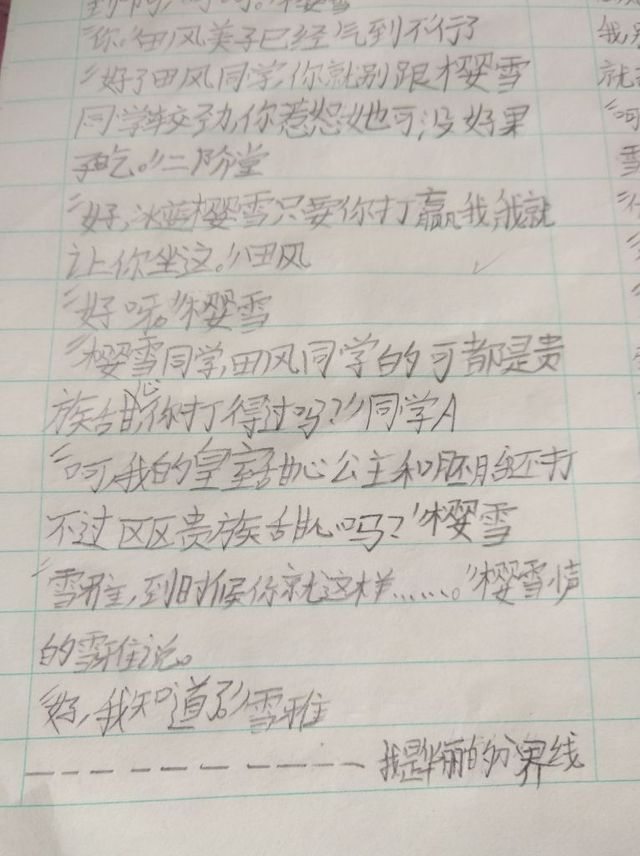 "你。"田风美子已经气到不行了
"好了田风同学,你就别跟樱雪
同学较劲,你惹怒她可没好果
子吃。"二阶堂
"好,冰蓝樱雪只要你打赢我,我就
让你坐这。"田风
"好呀。"樱雪
"樱雪同学,田风同学的可都是贵
族甜心你打得过吗?"同学A
"呵,我的皇室甜心公主和胚胎还打
不过区区贵族甜心吗?"樱雪
"雪雅,到时候你就这样……。"樱雪悄
的雪雅说。
"好,我知道了"雪雅
————————我是华丽的分界线
我
就
"呵
雪